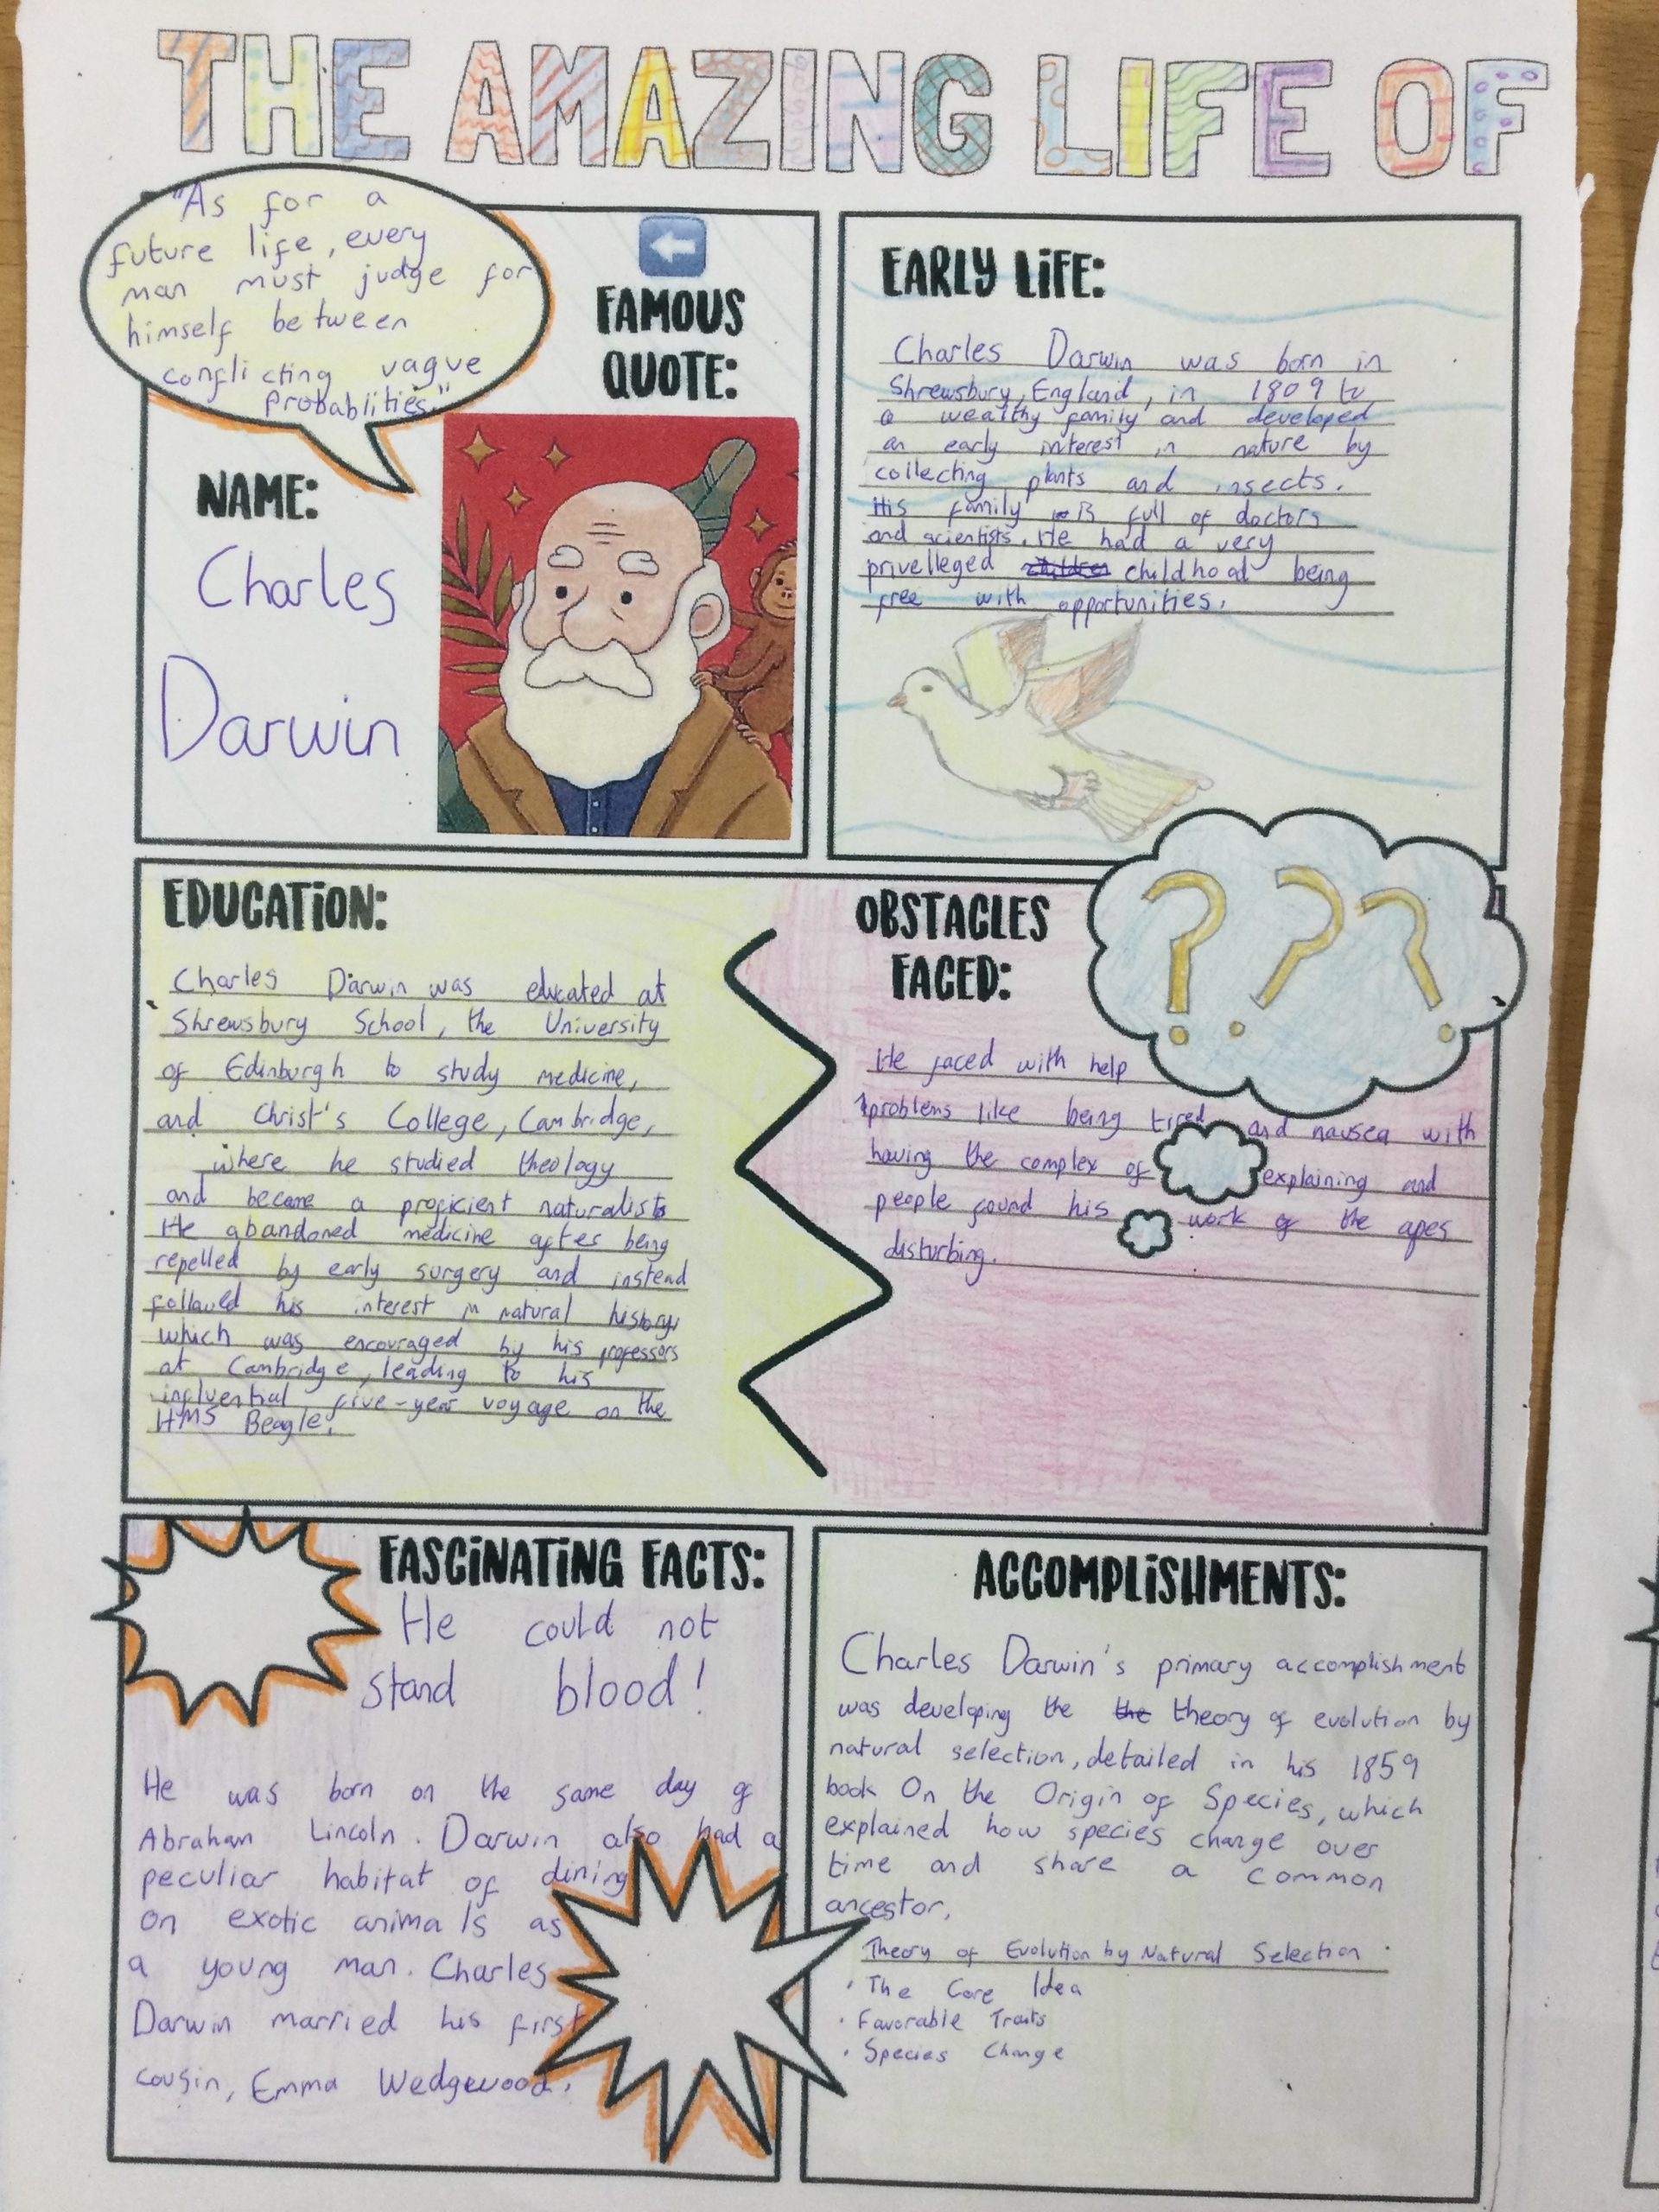 THE AMAZING LIFE OF
"As for a
future life, every
man must judge for
himself between
conflicting vague
probablities."
FAMOUS
QUOTE:
NAME:
Charles
Darwin
EARLY LiFE:
Charles Darwin was born in
Shrewsbury, England, in 1809 to
a wealthy family and developed
an early interest in nature by
collecting plants and insects.
His family is full of doctors
and scientists. He had a very
privelleged children childhood being
free with opportunities.
EDUCATiON:
Charles Darwin was educated at
Shrewsbury School, the University
of Edinburgh to study medicine,
and Christ's College, Cambridge,
where he studied theology
and became a proficient naturalists
He abandoned medicine after being
repelled by early surgery and instead
followed his interest in natural history,
which was encouraged by his professors
at Cambridge, leading to his
influential five-year voyage on the
HMS Beagle.
OBSTACLES
FACED:
? ? ?
He faced with help
problems like being tired and nausea with
having the complex of explaining and
people found his work of the apes
disturbing.
FASCiNATiNG FACTS:
He could not
stand blood!
He was born on the same day of
Abraham Lincoln. Darwin also had a
peculiar habitat of dining
on exotic animals as
a young man. Charles
Darwin married his first
cousin, Emma Wedgewood.
ACCOMPLiSHMENTS:
Charles Darwin's primary accomplishment
was developing the the theory of evolution by
natural selection, detailed in his 1859
book On the Origin of Species, which
explained how species change over
time and share a common
ancestor.
Theory of Evolution by Natural Selection
· The Core Idea
· Favorable Traits
· Species Change